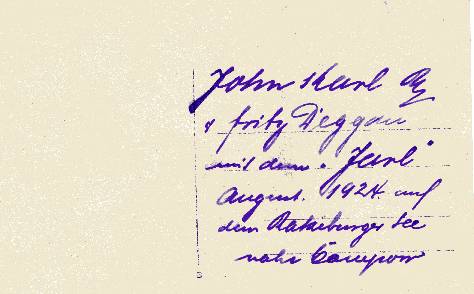 John Karl
u Fritz Deggau
mit dem "Jarl"
August. 1924. auf
dem Ratzeburger See
nahe Campow